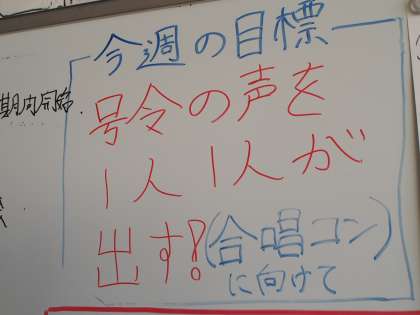 今週の目標
号令の声を
1人1人が
出す!(合唱コン)
に向けて